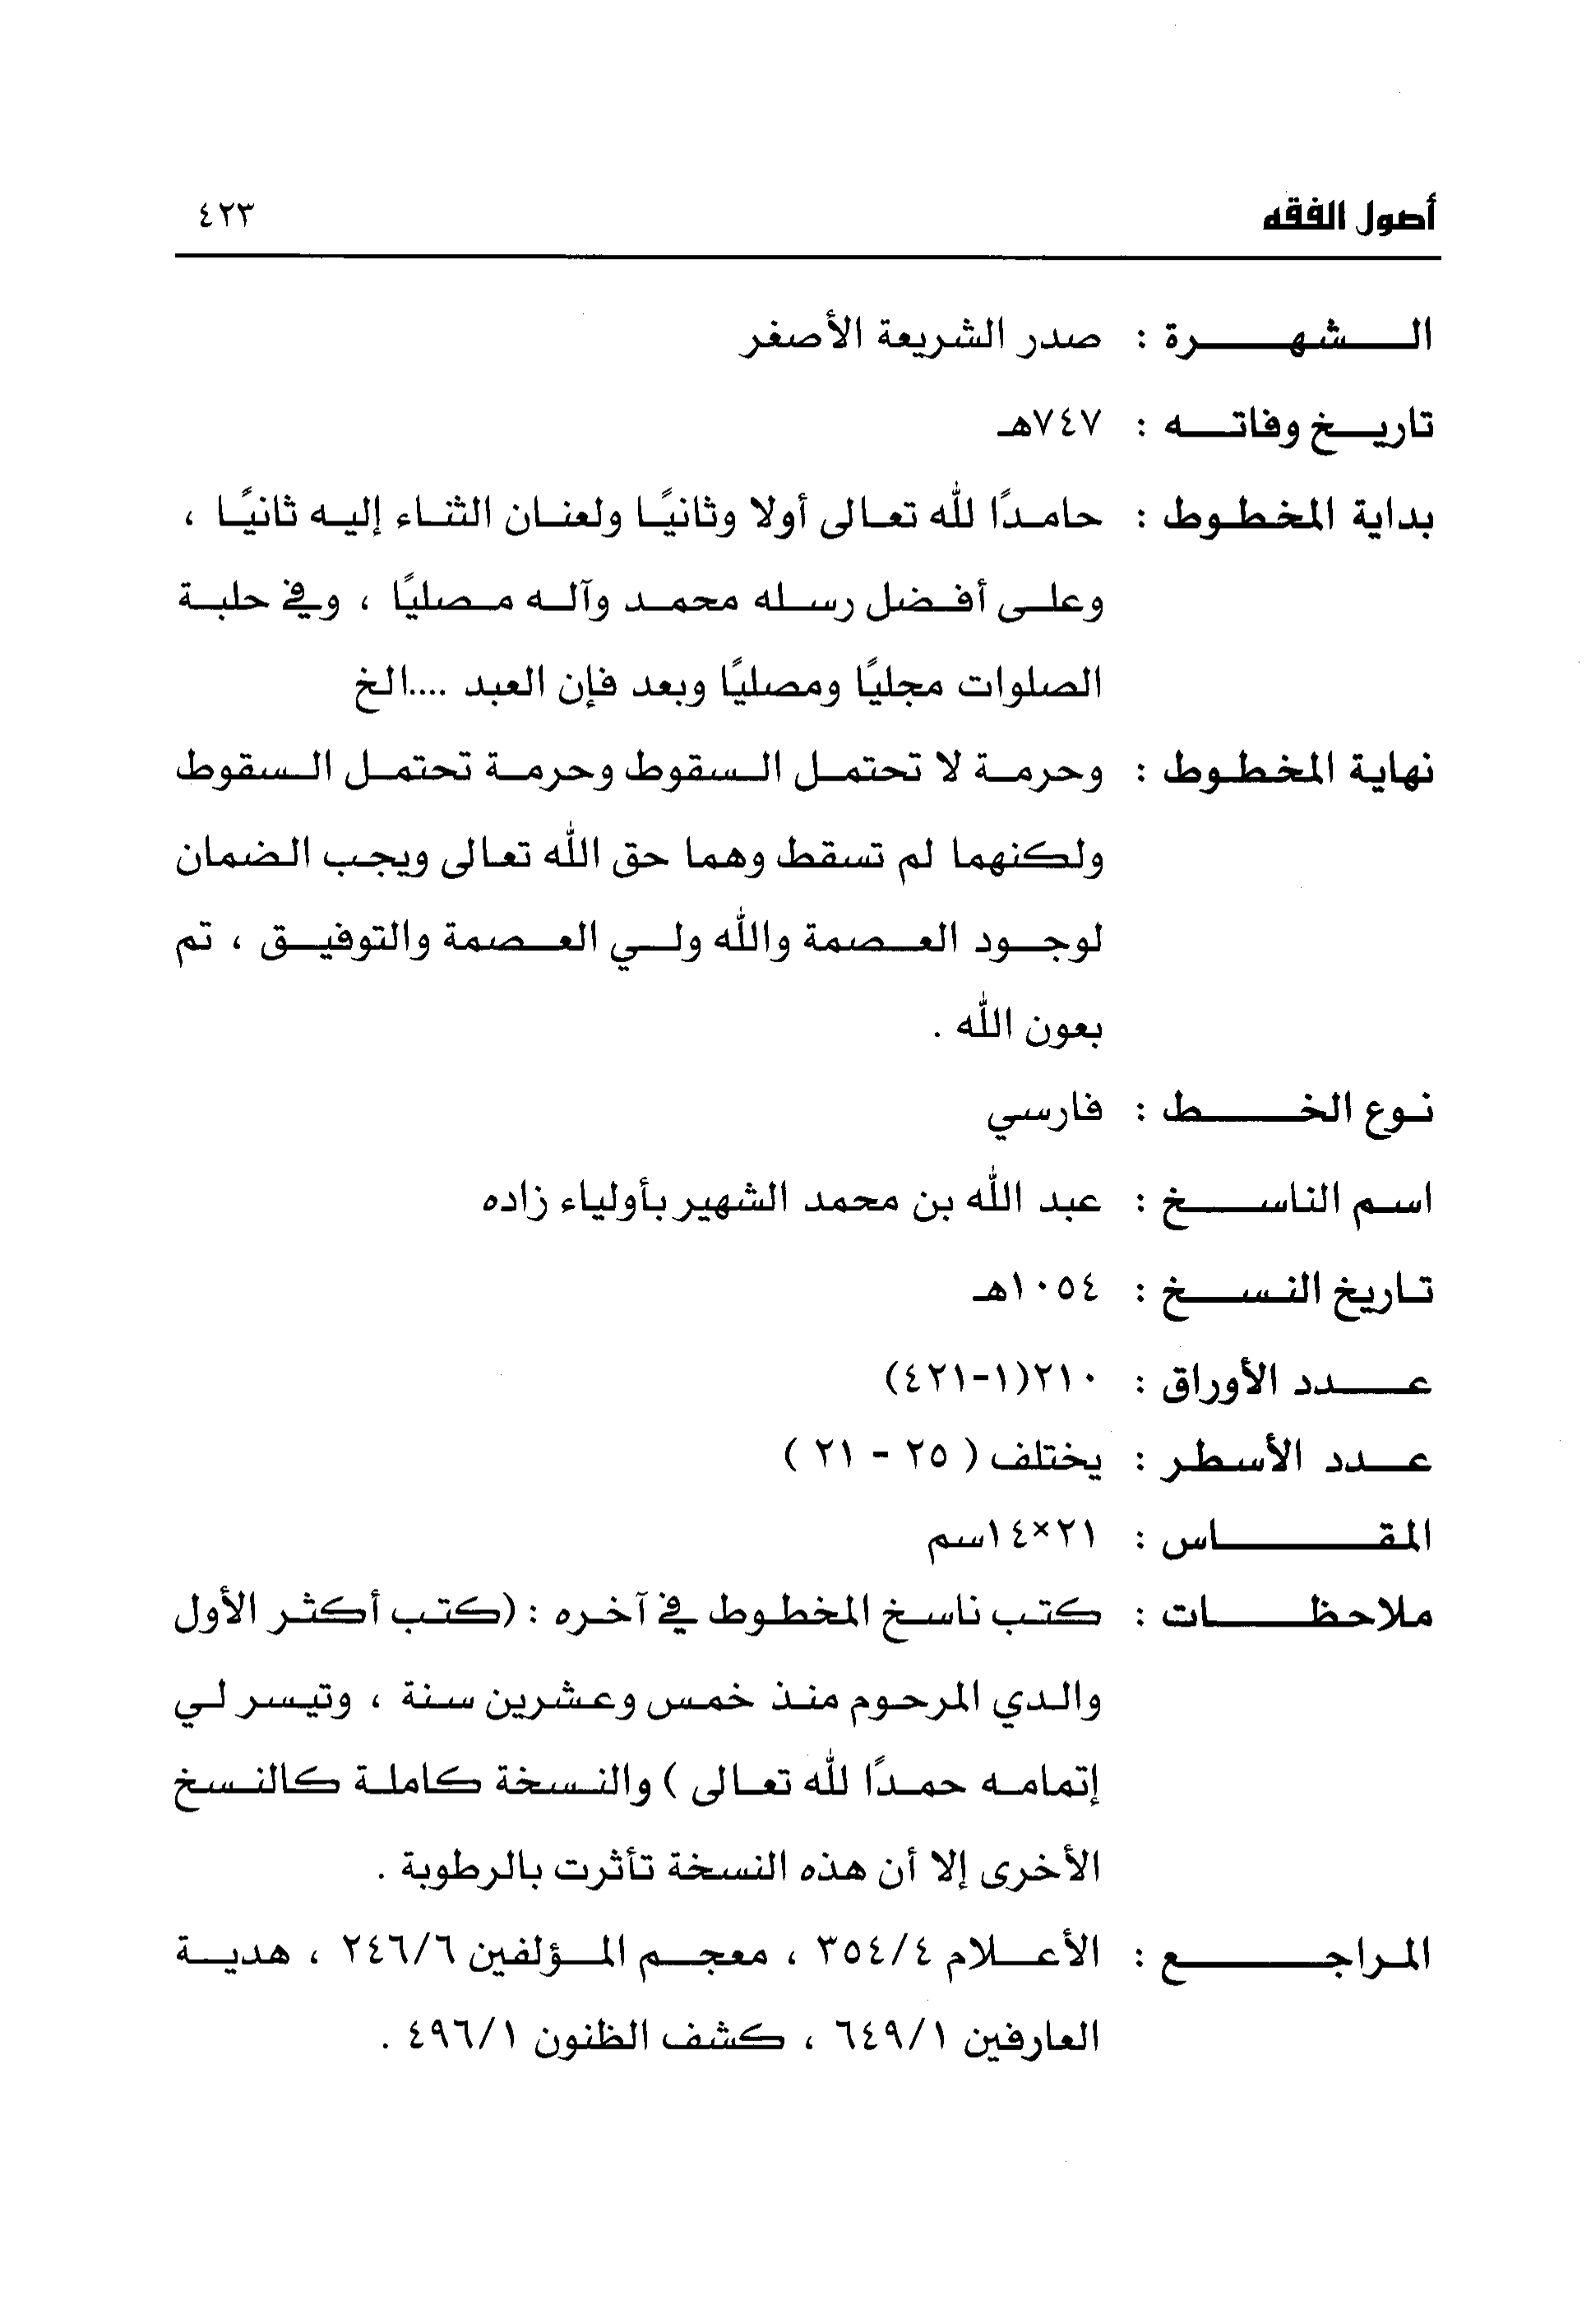 أصول الفقه ٤٢٣
الشهرة : صدر الشريعة الأصغر
تاريخ وفاته : ٧٤٧هـ
بداية المخطوط : حامدًا لله تعالى أولا وثانيًا ولعنان الثناء إليه ثانيًا ،
وعلى أفضل رسله محمد وآله مصليًا ، وفي حلبة
الصلوات مجليًا ومصليًا وبعد فإن العبد ....الخ
نهاية المخطوط : وحرمة لا تحتمل السقوط وحرمة تحتمل السقوط
ولكنهما لم تسقط وهما حق الله تعالى ويجب الضمان
لوجود العصمة والله ولي العصمة والتوفيق ، تم
بعون الله .
نوع الخط : فارسي
اسم الناسخ : عبد الله بن محمد الشهير بأولياء زاده
تاريخ النسخ : ١٠٥٤هـ
عدد الأوراق : ٢١٠(١-٤٢١)
عدد الأسطر : يختلف ( ٢٥ - ٢١ )
المقاس : ٢١×١٤سم
ملاحظات : كتب ناسخ المخطوط في آخره : (كتب أكثر الأول
والدي المرحوم منذ خمس وعشرين سنة ، وتيسر لي
إتمامه حمدًا لله تعالى ) والنسخة كاملة كالنسخ
الأخرى إلا أن هذه النسخة تأثرت بالرطوبة .
المراجع : الأعلام ٣٥٤/٤ ، معجم المؤلفين ٢٤٦/٦ ، هدية
العارفين ٦٤٩/١ ، كشف الظنون ٤٩٦/١ .